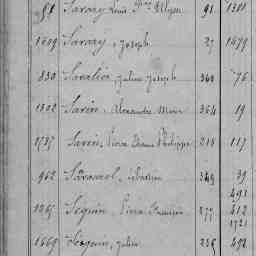 81 Savary Louis 91 1310
1609 Savary, Joseph 27 1679
830 Savalier, Julien Joseph 360 76
1302 Savin, Alexandre Marie 364 19
1737 Savin, Pierre Philippe 218 117
962 Savournel, Sébastien 349 39
491
1267 Séguin, Pierre François 277 412
1721
1669 Séguin, Julien 236 492